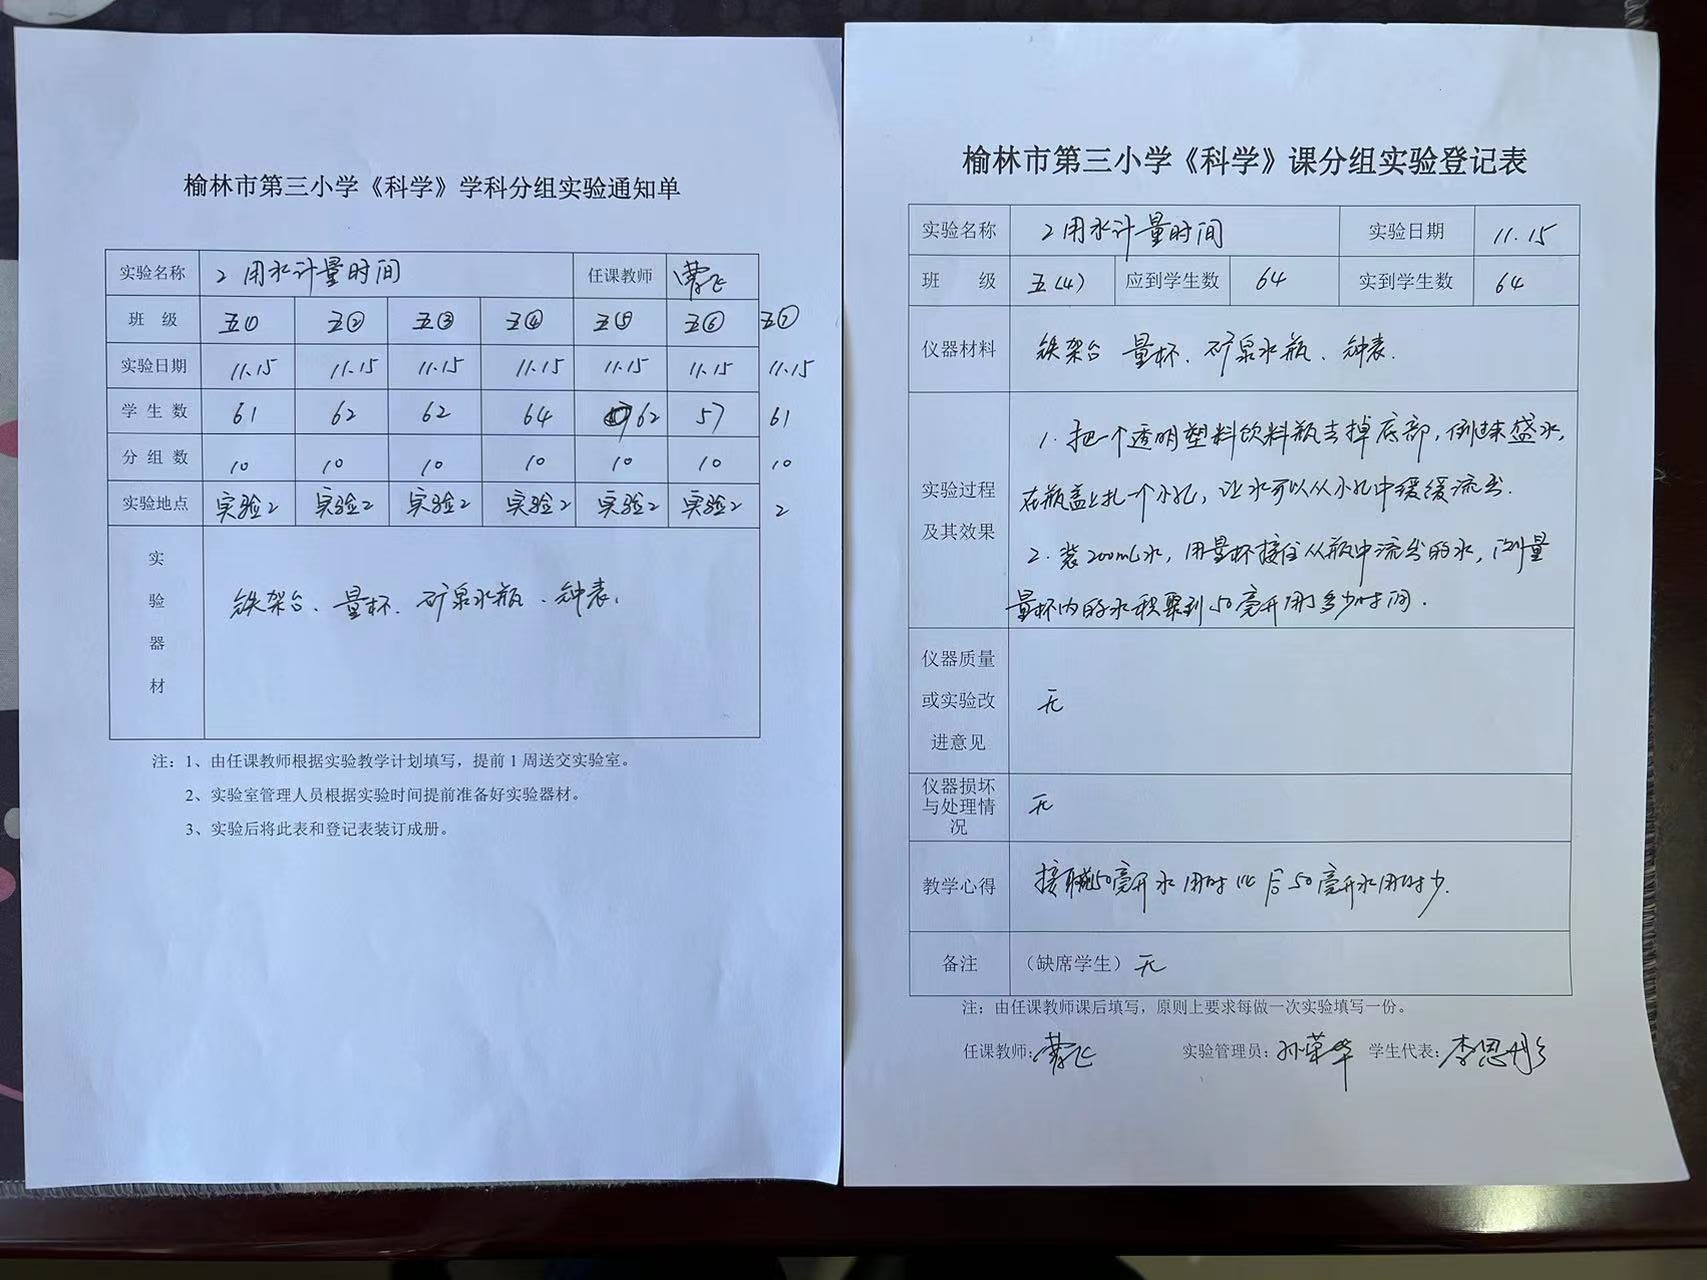 榆林市第三小学《科学》学科分组实验通知单
实验名称 2 用水计量时间 任课教师
班级 五① 五② 五③ 五④ 五⑤ 五⑥ 五⑦
实验日期 11.15 11.15 11.15 11.15 11.15 11.15 11.15
学生数 61 62 62 64 62 57 61
分组数 10 10 10 10 10 10 10
实验地点 实验2 实验2 实验2 实验2 实验2 实验2 2
实验器材 铁架台、量杯、矿泉水瓶、钟表。
注：1、由任课教师根据实验教学计划填写，提前1周送交实验室。
2、实验室管理人员根据实验时间提前准备好实验器材。
3、实验后将此表和登记表装订成册。
榆林市第三小学《科学》课分组实验登记表
实验名称 2 用水计量时间 实验日期 11.15
班级 五(4) 应到学生数 64 实到学生数 64
仪器材料 铁架台 量杯、矿泉水瓶、钟表.
实验过程及其效果
1. 把一个透明塑料饮料瓶去掉底部，倒过来盛水，
在瓶盖上扎一个小孔，让水可以从小孔中缓缓流出.
2. 装200mL水，用量杯接住从瓶中流出的水，测量
量杯内的水积聚到50毫升用了多少时间.
仪器质量或实验改进意见 无
仪器损坏与处理情况 无
教学心得 接50毫升水用时比后50毫升水用时少.
备注 （缺席学生）无
注：由任课教师课后填写，原则上要求每做一次实验填写一份。
任课教师: 实验管理员：孙荣华 学生代表：李思彤